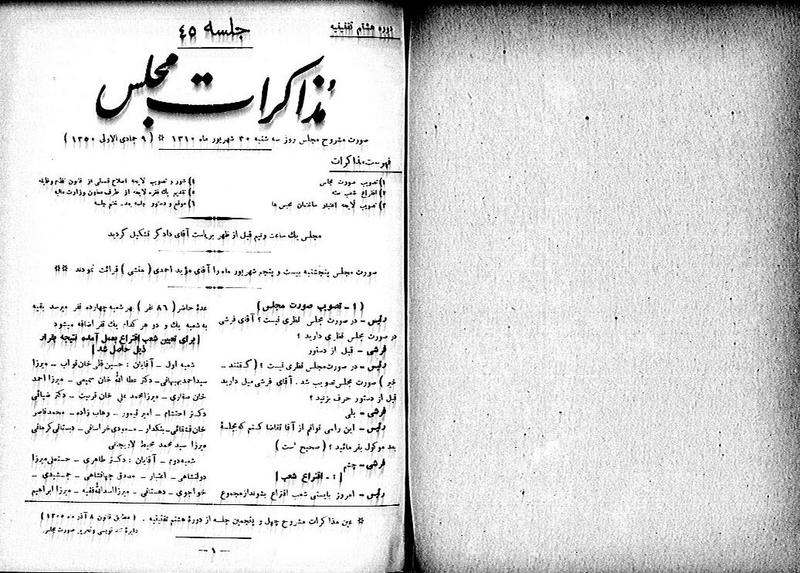 دوره هشتم تقنینیه
جلسه ۴۵
مذاکرات مجلس
صورت مشروح مجلس روز سه شنبه ۳۰ شهریور ماه ۱۳۱۰ * ( ۹ جمادی الاولی ۱۳۵۰ )
فهرست مذاکرات
۱) تصویب صورت مجلس
۲) اقتراع شعب سته
۳) تصویب لایحه اعتبار ساختمان محبس ها
۴) شور و تصویب لایحه اصلاح قسمتی از قانون نظام وظیفه
۵) تقدیم یک فقره لایحه از طرف معاون وزارت مالیه
۶) موقع و دستور جلسه بعد ـ ختم جلسه
مجلس یک ساعت و نیم قبل از ظهر بریاست آقای دادگر تشکیل گردید
صورت مجلس پنجشنبه بیست و پنجم شهریور ماه را آقای مؤید احمدی ( منشی ) قرائت نمودند **
( ۱ ـ تصویب صورت مجلس )
رئیس ـ در صورت مجلس نظری نیست ؟ آقای فرشی
در صورت مجلس نظری دارید ؟
فرشی ـ قبل از دستور
رئیس ـ در صورت مجلس نظری نیست ؟ ( گفتند ـ
خیر ) صورت مجلس تصویب شد . آقای فرشی میل دارید
قبل از دستور حرف بزنید ؟
فرشی ـ بلی
رئیس ـ این را می توانم از آقا تقاضا کنم که بجلسهٔ
بعد موکول بفرمائید ؟ ( صحیح است )
فرشی ـ چشم
[ ۲ ـ اقتراع شعب ]
رئیس ـ امروز بایستی شعب اقتراع بشوند از مجموع
عدهٔ حاضر ( ۸۶ نفر ) بهر شعبه چهارده نفر میرسد بقیه
به شعبه یک و دو هر کدام یک نفر اضافه میشود
[ برای تعیین شعب اقتراع بعمل آمده نتیجه بقرار
ذیل حاصل شد ]
شعبه اول ـ آقایان : حسین قلی خان نواب ـ میرزا
سید احمد بهبهانی ـ دکتر عطا الله خان سمیعی ـ میرزا احمد
خان صفاری ـ میرزا محمد علی خان فرست ـ دکتر ضیائی
دکتر احتشام ـ امیر تیمور ـ وهاب زاده ـ محمد ناصر
خان قشقائی ـ بنکدار ـ مسعودی خراسانی ـ دبستانی کرمانی
میرزا سید محمد محیط لاریجانی
شعبه دوم ـ آقایان : دکتر طاهری ـ حسنعلی میرزا
دولتشاهی ـ اعتبار ـ مصدق جهانشاهی ـ جمشیدی ـ
خواجوی ـ دهستانی ـ میرزا اسدالله فقیه ـ میرزا ابراهیم
* عین مذاکرات مشروح چهل و پنجمین جلسه از دورهٔ هشتم تقنینیه .
( مطابق قانون ۸ آذر ۱۳۰۵ )
دایره تند نویسی و تحریر صورت مجلس
ـ ۱ ـ